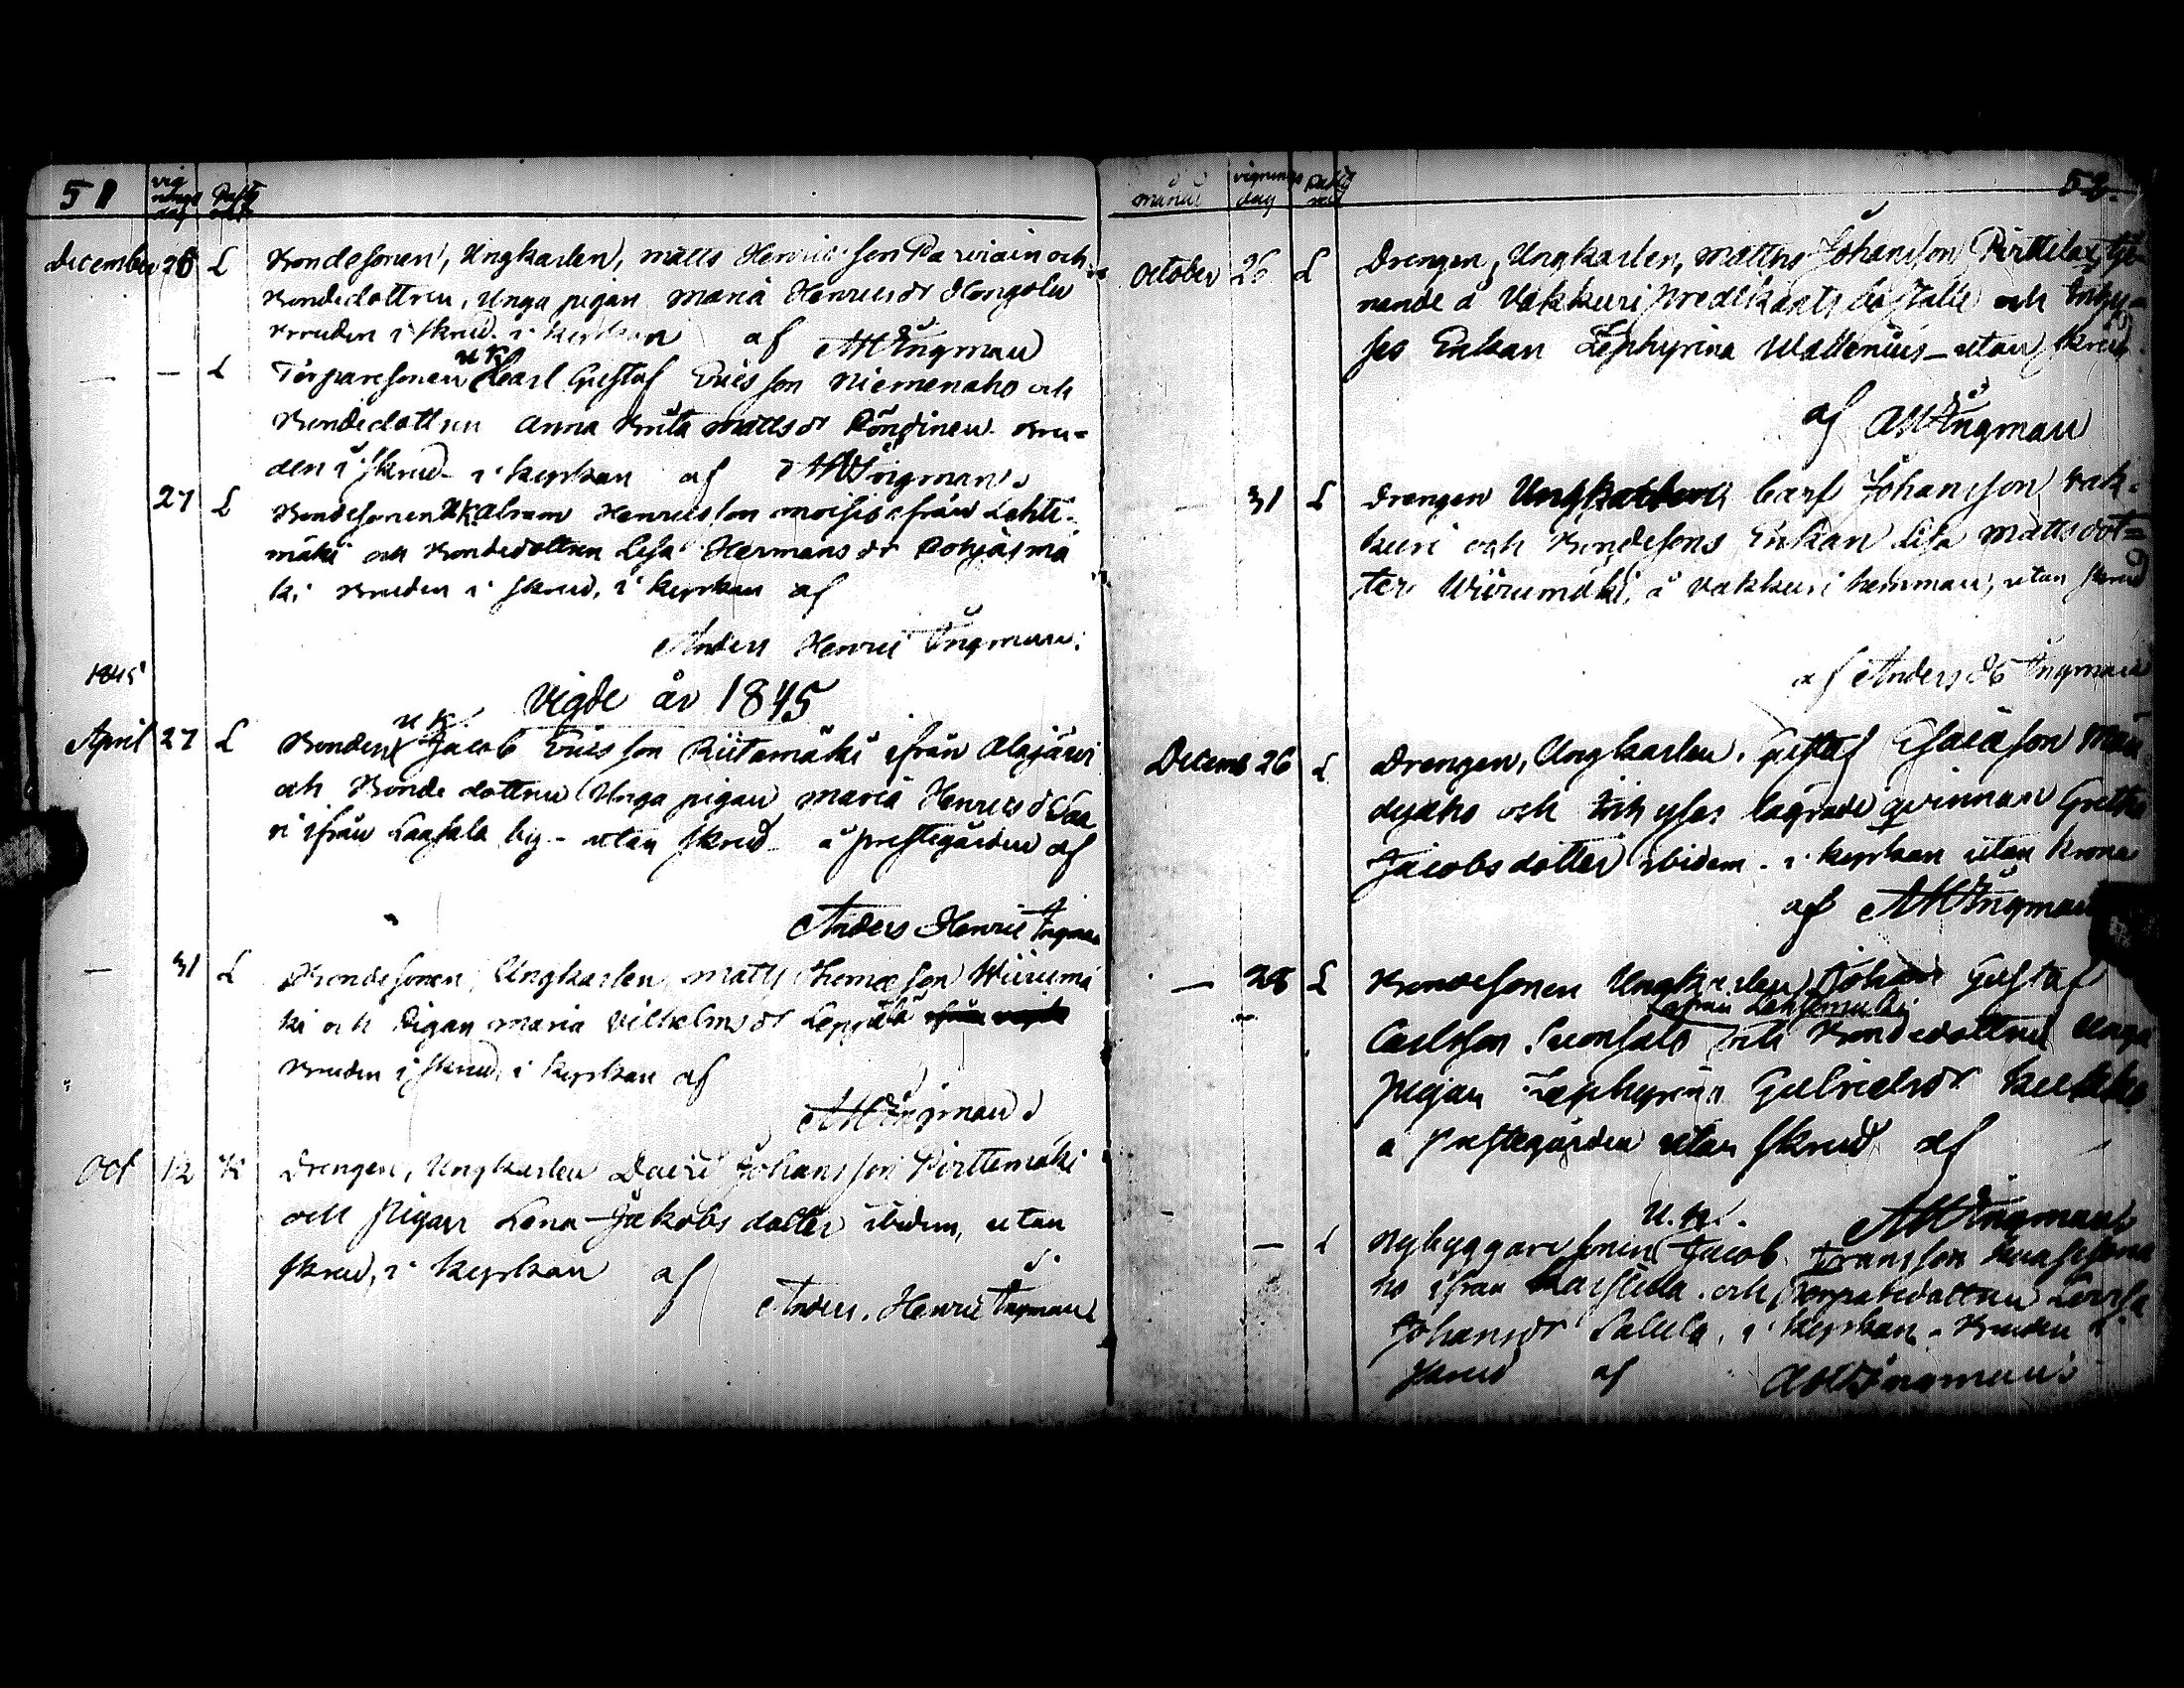 51 vig nings dag
December 26 L Bondesonen, Ungkarlen, Matts Henricsson Parviain och
Bondedottren, Unga pigan Maria Henricsdr Hongola
Bruden i skrud i kyrkan af AHIngman
— — L Torparesonen UK Carl Gustaf Ericsson Niemenaho och
Bondedottren Anna Brita Mattsdr Pönginen Bru-
den i skrud i kyrkan af AHIngman
27 L Bondesonen UK Abram Henricsson Moisio ifrån Lehti-
mäki och Bondedottren Lisa Hermansdr Pohjasmä
ki Bruden i skrud, i kyrkan af
Anders Henric Ingman
1845
Vigde år 1845
u k.
April 27 L Bonden Jacob Ericsson Riitamäki ifrån Alajärvi
och Bonde dottren Unga pigan Maria Henricsd Saa
ri ifrån Laasala by – utan skrud å prestegården af
Anders Henric Ingman
— 31 L Bondesonen, Ungkarlen Matts Thomasson Wiirumä
ki och Pigan Maria Vilhelmsdr Leppälä
Bruden i skrud, i kyrkan af
AHIngman
Oct 12 K Drengen, Ungkarlen David Johansson Pirttemäki
och Pigan Lena Jakobs dotter ibidem, utan
skrud, i kyrkan af
Anders Henric Ingman
månad vignings dag 52.
October 26 L Drengen, Ungkarlen, Matths Johansson Pirttela, tje-
nande å Vakkuri Predikants boställe och
ses Enkan Zephyrina Wallenius – utan skrud
af AHIngman
— 31 L Drengen Ungkarlen Carl Johansson Vak-
kuri och Bondesons Enkan Lisa Mattsdot=
ter Wiirumäki, å Vakkuri hemman, utan skrud
af Anders H Ingman
Decemb 26 L Drengen, Ungkarlen, Gustaf Esaiasson Män
dyaho och lägrade qvinnan Greta
Jacobsdotter ibidem. i kyrkan utan krona
af AHIngman
— 28 L Bondesonen Ungkarlen Johan Gustaf
ifrån Lehtimäki
Carlsson Suonsalo och Bondedottren Unga
pigan Zephyrina Gabrielsdr
å Prestegården utan skrud af
AHIngman
U.K.
— L Nybyggaresonen Jacob Fransson
ho ifrån Karstula och Torparedottren Lovisa
Johansdr Salela, i kyrkan – Bruden i
skrud af AHIngman